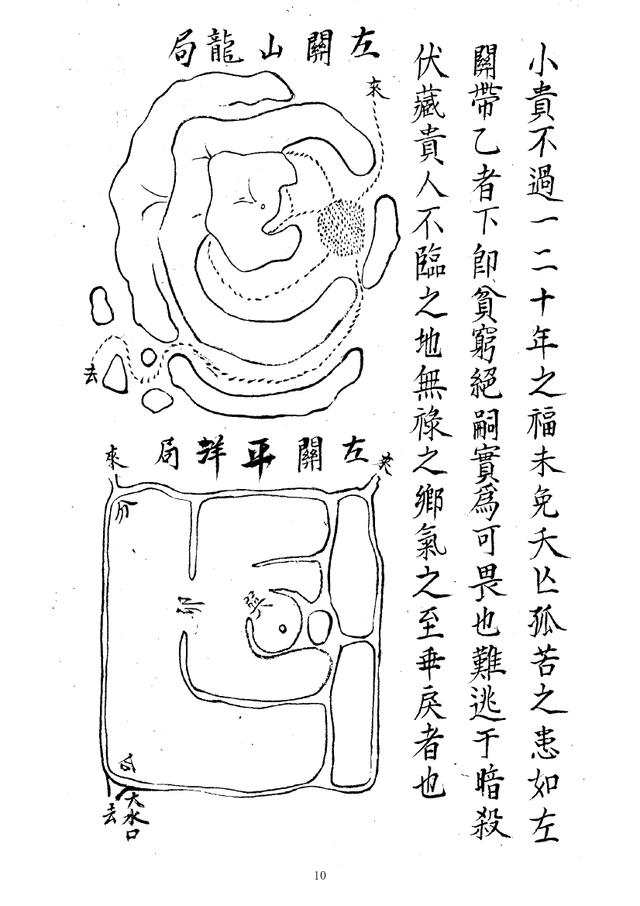 小貴不過一二十年之福未免夭亾孤苦之患如左
關帶乙者下卽貧窮絕嗣實爲可畏也難逃于暗殺
伏藏貴人不臨之地無祿之鄉氣之至乖戾者也
左關山龍局
來
去
左關平洋局
來
卯
巽
大水口
去
10